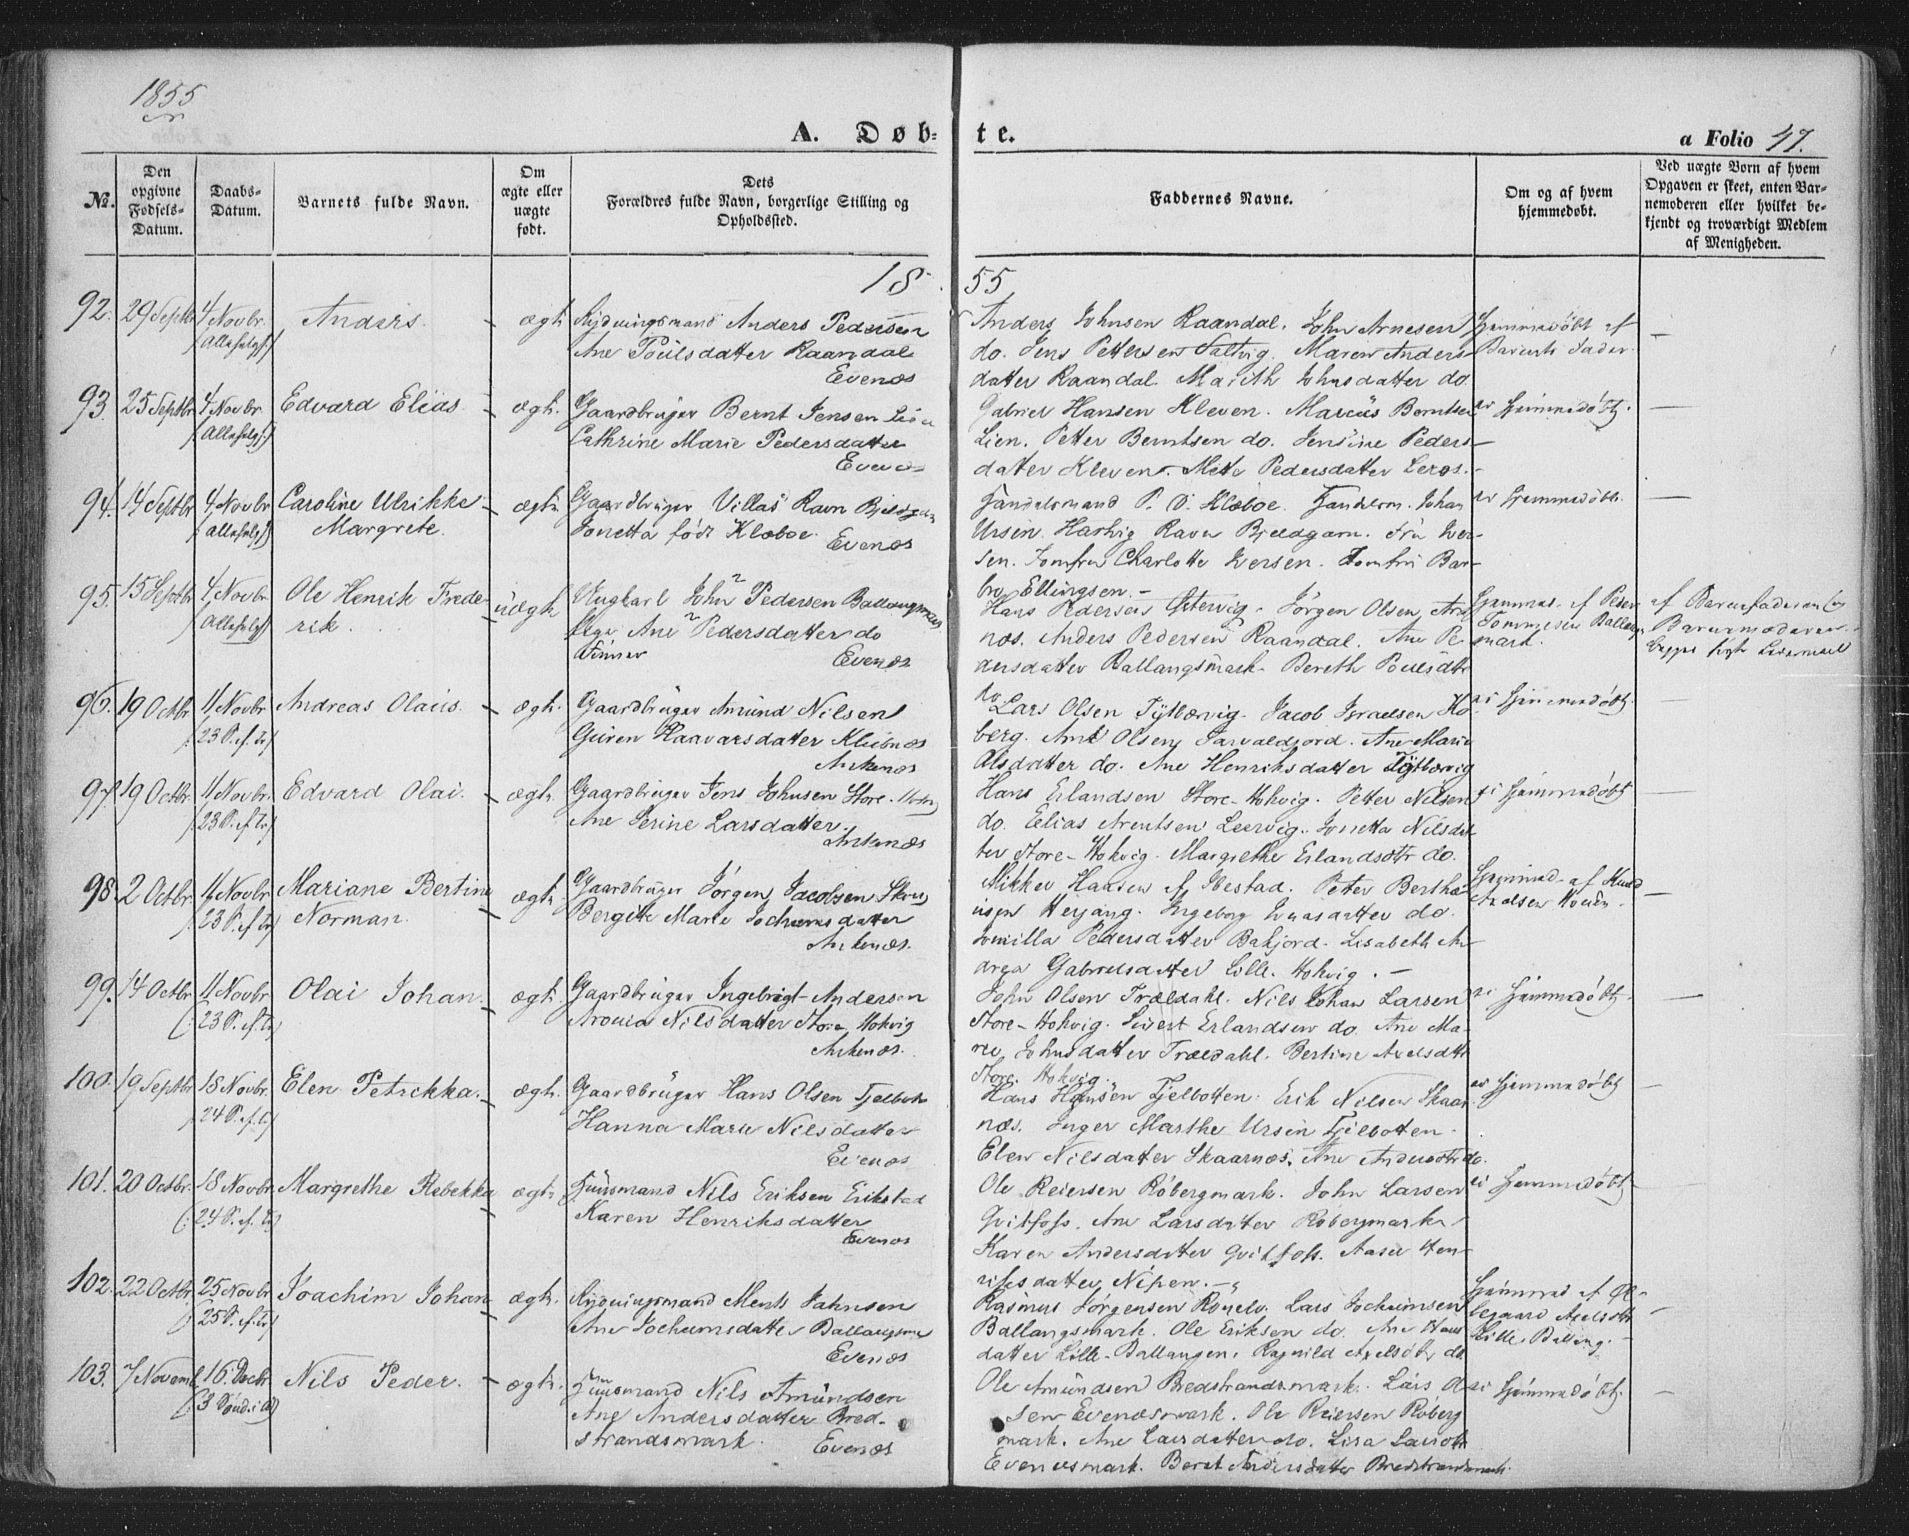 1855
A. Døb-
te.
a Folio 47.
No.
Den opgivne Fødsels-Datum.
Daabs-Datum.
Barnets fulde Navn.
Om ægte eller uægte født.
Dets Forældres fulde Navn, borgerlige Stilling og Opholdssted.
Faddernes Navne.
Om og af hvem hjemmedøbt.
Ved uægte Børn af hvem Opgaven er skeet, enten Barnemoderen eller hvilket bekjendt og troværdigt Medlem af Menigheden.
18 55
92. 29 Septbr 4 Novbr. Anders. ægte Rydningsmand Anders Pedersen
Ane Poulsdatter Raandal
Evenæs
Anders Johnsen Raandal. John Arnesen
do. Jens Pettersen Maren Anders-
datter Raandal. Marith Johnsdatter do.
Hjemmedøbt af
Barnets Fader.
93. 25 Septbr 4 Novbr. Edvard Elias. ægte. Gaardbruger Bernt Jensen Lien
Cathrine Marie Pedersdatter
Evenæs
Gabriel Hansen Kleven. Marcus Berntsen
Lien. Petter Berntsen do. Jensine Peders-
datter Kleven. Mette Pedersdatter
ei hjemmedøbt.
94. 14 Septbr 4 Novbr Caroline Ulrikke
Margrete.
ægte Gaardbruger Villas Ravn
Jonetta født Klæboe.
Evenæs
Handelsmand P. D. Klæboe. Johan
Ursin. Hartvig Ravn Bjeldgam. Fru Iver-
sen. Jomfru Charlotte Iversen. Jomfru Bar-
bro Ellingsen.
ei hjemmedøbt.
95. 15 Septbr 4 Novbr Ole Henrik Frede-
rik.
uægte Ungkarl John Pedersen Ballangsmark
Pige Ane Pedersdatter do
Finner
Evenæs
Hans Pedersen Jørgen Olsen
næs. Anders Pedersen Raandal. Ane Pe-
dersdatter Ballangsmark. Bereth Poulsdtr
do
Hjemmed. af Peder
Tommesen
mark.
af Barnefaderen og
Barnemoderen.
96. 19 Octbr 11 Novbr
(23 S. ef. Tr)
Andreas Olaus. ægte. Gaardbruger Amund Nilsen
Guren Haavarsdatter
Ankenæs
Lars Olsen Tyttbærvig. Jacob Israelsen Ho-
berg. Arnt Olsen Ane Marie
Olsdatter do. Ane Henriksdatter Tyttbærvig
ei hjemmedøbt.
97. 19 Octbr. 11 Novbr.
(23 S. ef. Tr)
Edvard Olai. ægte. Gaardbruger Jens Johnsen Store-
Ane Serine Larsdatter.
Ankenæs
Hans Erlandsen Store-Hokvig. Petter Nilsen
do. Elias Arentsen Leervig. Jonetta Nilsdat-
ter Store-Hokvig. Margrethe Erlandsdtr do.
ei hjemmedøbt
98. 2 Octbr. 11 Novbr
(23 S. ef Tr)
Mariane Bertine
Norman.
ægte. Gaardbruger Jørgen Jacobsen
Bergitte Marie Jochumsdatter
Ankenæs.
Mikkel Hansen af Ibestad. Peter Berthe-
usen Herjang. Ingeborg do.
Pedersdatter Lisabeth An-
drea Gabrielsdatter Lille-Hokvig.
Hjemmed. af Knud
Axelsen
99. 14 Octbr 11 Novbr
(23 S. ef. Tr)
Olai Johan. ægte. Gaardbruger Ingebrigt Andersen
Nilsdatter Store Hokvig
Ankenæs.
John Olsen Trældahl. Nils Johan Larsen
Store-Hokvig. Sivert Erlandsen do. Ane Ma-
rie Johnsdatter Trældahl. Bertine Axelsdtr
Store-Hokvig.
ei hjemmedøbt.
100. 19 Septbr 18 Novbr.
(24 S. ef. Tr)
Elen Petrikka. ægte. Gaardbruger Hans Olsen
Hanna Marie Nilsdatter
Evenæs
Hans Hansen Fjelbotten. Erik Nilsen Skaar-
næs. Inger Marthe Ursin Fjelbotten.
Elen Nilsdatter Skaarnæs. Ane Andersdtr do.
ei hjemmedøbt
101. 20 Octbr. 18 Novbr.
(24 S. ef. Tr)
Margrethe Rebekka ægte. Huusmand Nils Eriksen Erikstad
Karen Henriksdatter
Evenæs
Ole Reiersen Robergmark. John Larsen
Qvitfoss. Ane Larsdatter Robergmark.
Karen Andersdatter Qvitfoss. Aaser Hen-
riksdatter Nipen.
ei hjemmedøbt
102. 22 Octbr. 25 Novbr
(25 S. ef. Tr)
Joachim Johan ægte. Rydningsmand Ments Jahnsen
Ane Jochumsdatter
Evenæs
Rasmus Jørgensen Lars Jochumsen
Ballangsmark. Ole Eriksen do. Ane Hans-
datter Lille-Ballangen. Ragnild Axelsdtr do
Hjemmed af
Axelsdtr
Lille-Balling.
103. 7 Novemb 16. Decbr
(3 Sønd. i Ad)
Nils Peder. ægte. Huusmand Nils Amundsen
Ane Andersdatter Bred-
strandsmark.
Evenæs
Ole Amundsen Bredstrandsmark. Lars Ol-
sen Evenæsmark. Ole Reiersen Roberg-
mark. Ane Larsdatter do. Lisa Larsdtr
Evenesmark. Beret Andersdatter Bredstrandsmark.
ei hjemmedøbt.